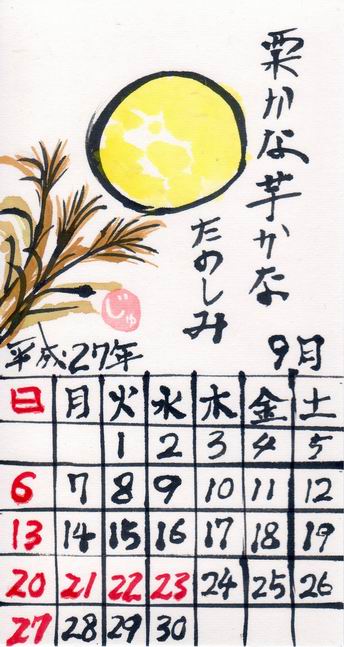 栗かな芋かな
たのしみ
じゅ
平成27年 9月
日 月 火 水 木 金 土
1 2 3 4 5
6 7 8 9 10 11 12
13 14 15 16 17 18 19
20 21 22 23 24 25 26
27 28 29 30